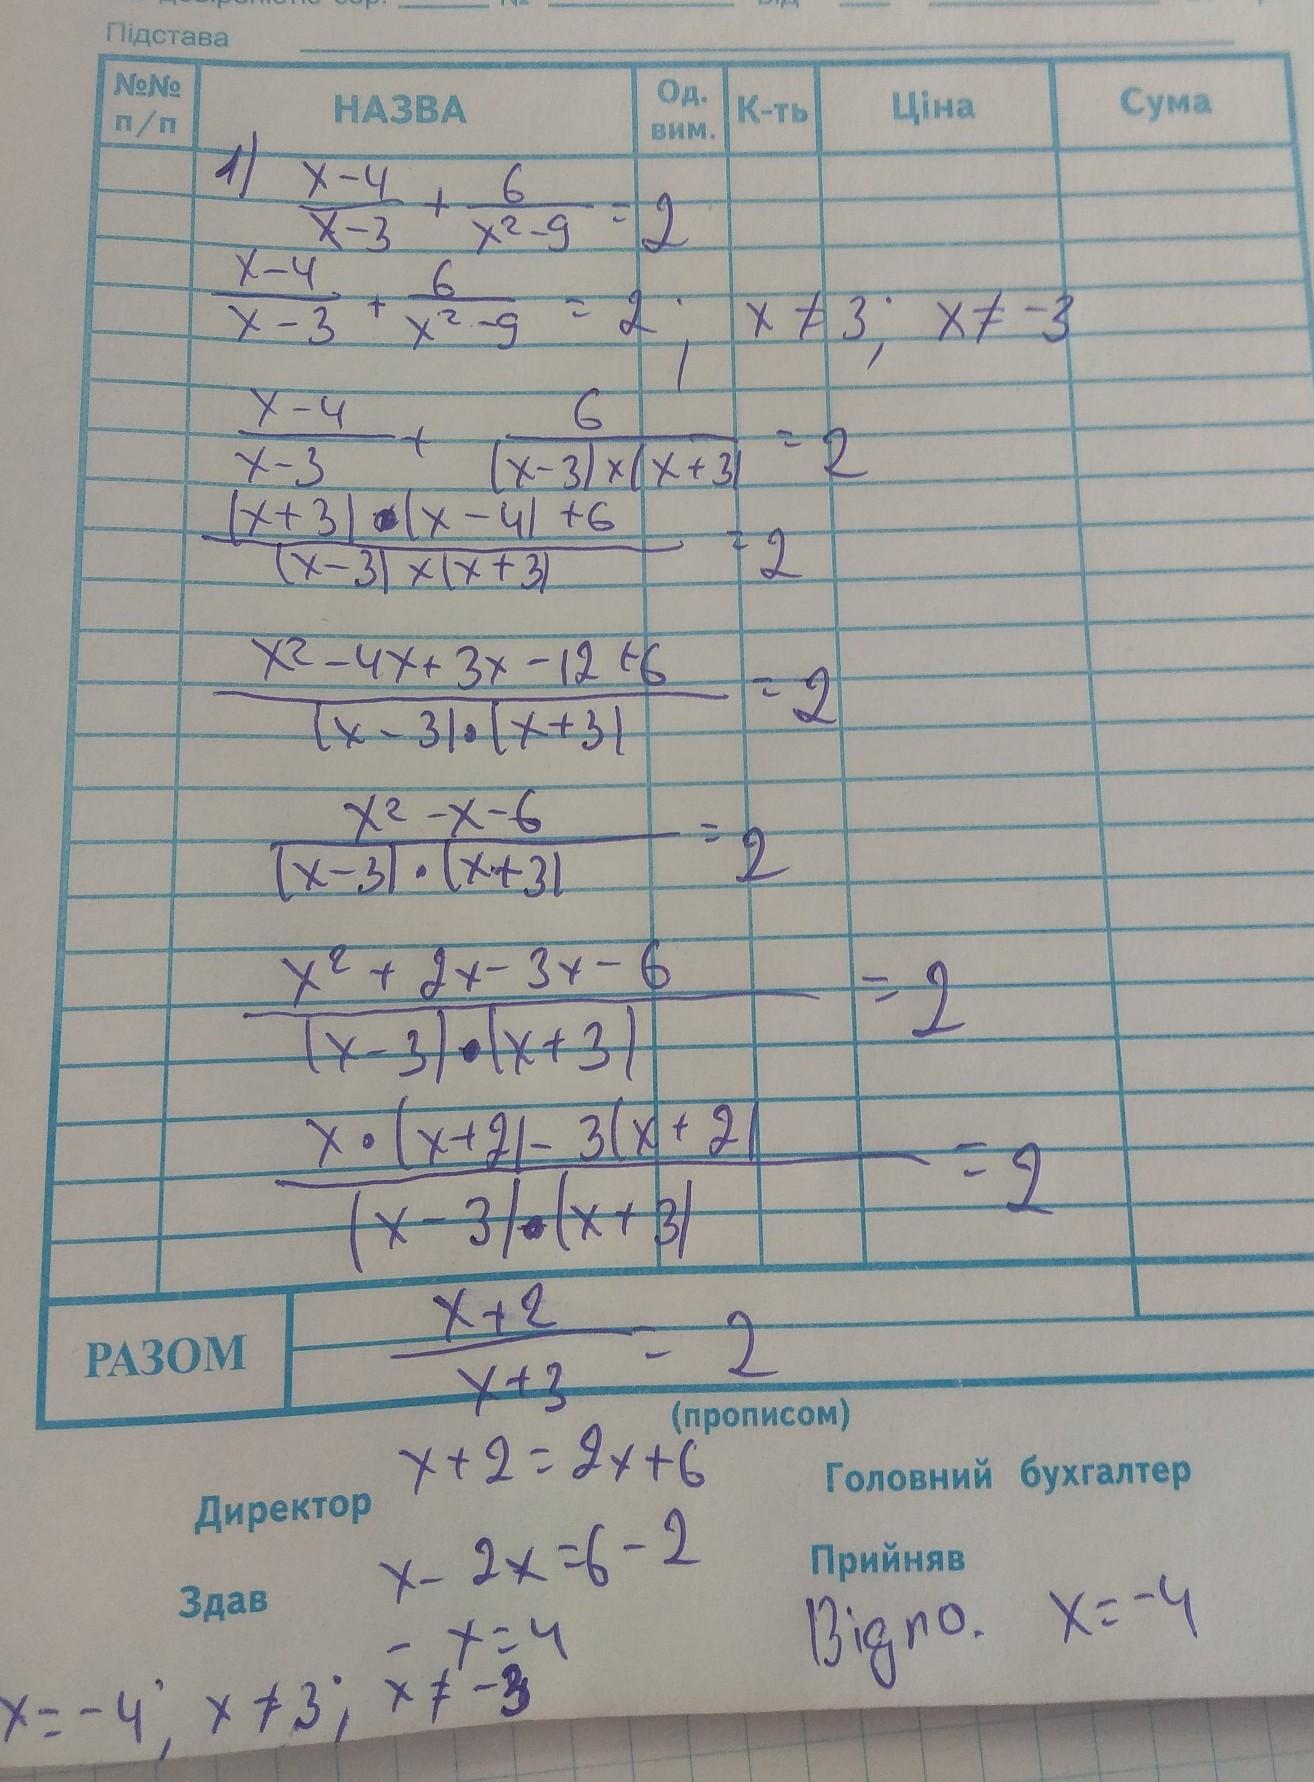 Підстава
№№ п/п НАЗВА Од. вим. К-ть Ціна Сума
1) (x-4)/(x-3) + 6/(x²-9) = 2
(x-4)/(x-3) + 6/(x²-9) = 2; x≠3; x≠-3
(x-4)/(x-3) + 6/((x-3)×(x+3)) = 2
((x+3)•(x-4)+6)/((x-3)×(x+3)) = 2
(x²-4x+3x-12+6)/((x-3)•(x+3)) = 2
(x²-x-6)/((x-3)•(x+3)) = 2
(x²+2x-3x-6)/((x-3)•(x+3)) = 2
(x•(x+2)-3(x+2))/((x-3)•(x+3)) = 2
РАЗОМ (x+2)/(x+3) = 2
(прописом)
x+2=2x+6
Директор Головний бухгалтер
x-2x=6-2
Здав Прийняв
-x=4 Відпо. x=-4
x=-4; x≠3; x≠-3